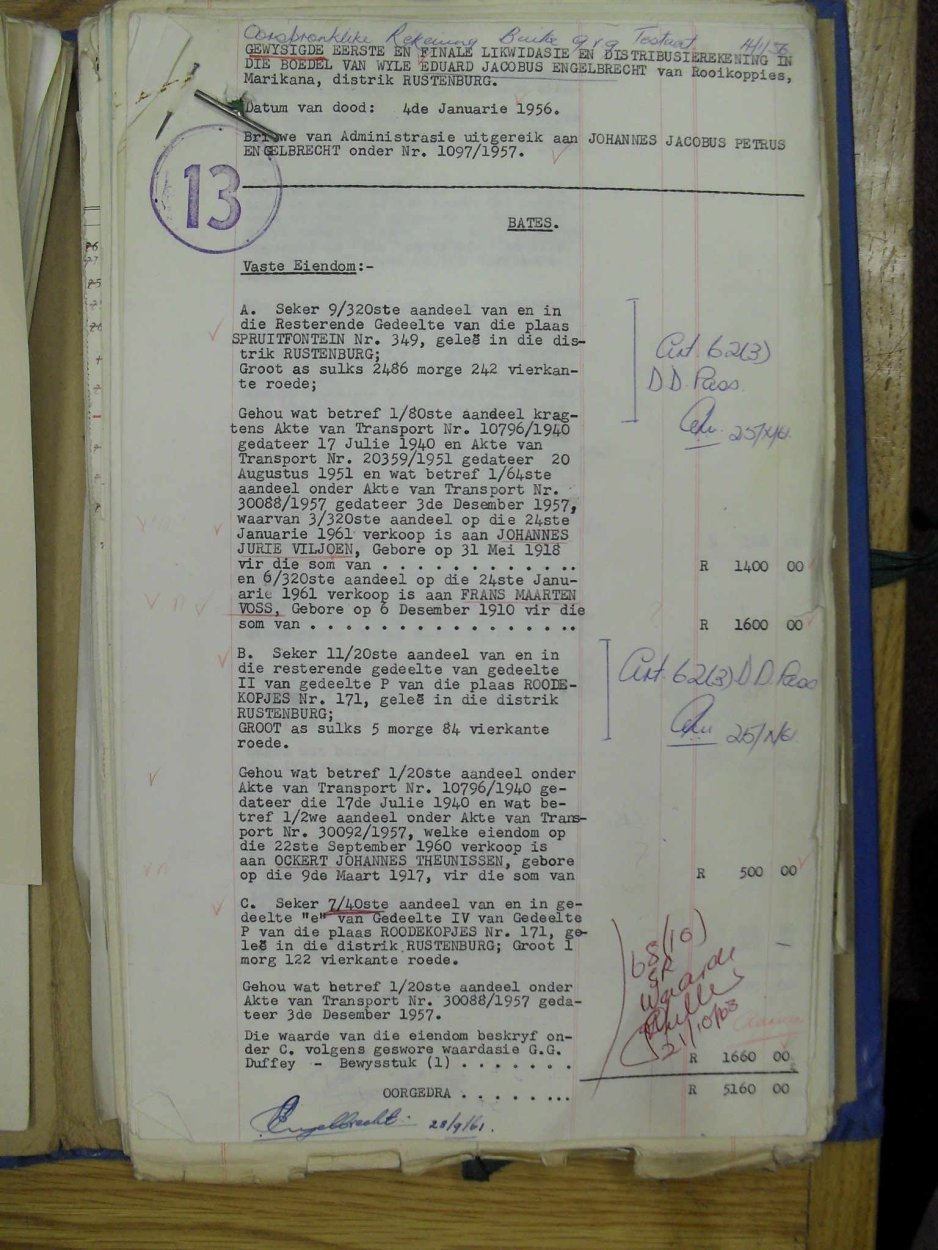 Oorspronklike Rekening Buite
GEWYSIGDE EERSTE EN FINALE LIKWIDASIE EN DISTRIBUSIEREKENING IN
DIE BOEDEL VAN WYLE EDUARD JACOBUS ENGELBRECHT van Rooikoppies,
Marikana, distrik RUSTENBURG.
Datum van dood: 4de Januarie 1956.
Briewe van Administrasie uitgereik aan JOHANNES JACOBUS PETRUS
ENGELBRECHT onder Nr. 1097/1957.
13
BATES.
Vaste Eiendom:-
A. Seker 9/320ste aandeel van en in
die Resterende Gedeelte van die plaas
SPRUITFONTEIN Nr. 349, geleë in die dis-
trik RUSTENBURG;
Groot as sulks 2486 morge 242 vierkan-
te roede;
Art. 62(3)
D.D. Pass.
Gehou wat betref 1/80ste aandeel krag-
tens Akte van Transport Nr. 10796/1940
gedateer 17 Julie 1940 en Akte van
Transport Nr. 20359/1951 gedateer 20
Augustus 1951 en wat betref 1/64ste
aandeel onder Akte van Transport Nr.
30088/1957 gedateer 3de Desember 1957,
waarvan 3/320ste aandeel op die 24ste
Januarie 1961 verkoop is aan JOHANNES
JURIE VILJOEN, Gebore op 31 Mei 1918
vir die som van . . . . . . . . . . . . R 1400 00
en 6/320ste aandeel op die 24ste Janu-
arie 1961 verkoop is aan FRANS MAARTEN
VOSS, Gebore op 6 Desember 1910 vir die
som van . . . . . . . . . . . . . . . . R 1600 00
B. Seker 11/20ste aandeel van en in
die resterende gedeelte van gedeelte
II van gedeelte P van die plaas ROODE-
KOPJES Nr. 171, geleë in die distrik
RUSTENBURG;
GROOT as sulks 5 morge 84 vierkante
roede.
Art. 62(3) D.D. Pass
Gehou wat betref 1/20ste aandeel onder
Akte van Transport Nr. 10796/1940 ge-
dateer die 17de Julie 1940 en wat be-
tref 1/2we aandeel onder Akte van Trans-
port Nr. 30092/1957, welke eiendom op
die 22ste September 1960 verkoop is
aan OCKERT JOHANNES THEUNISSEN, gebore
op die 9de Maart 1917, vir die som van R 500 00
C. Seker 7/40ste aandeel van en in ge-
deelte "e" van Gedeelte IV van Gedeelte
P van die plaas ROODEKOPJES Nr. 171, ge-
leë in die distrik RUSTENBURG; Groot 1
morg 122 vierkante roede.
68(10)
Waarde
21/10/63
Gehou wat betref 1/20ste aandeel onder
Akte van Transport Nr. 30088/1957 geda-
teer 3de Desember 1957.
Die waarde van die eiendom beskryf on-
der C. volgens geswore waardasie G.G.
Duffey - Bewysstuk (1) . . . . . . . R 1660 00
OORGEDRA . . . . . . . R 5160 00
Engelbrecht 28/9/61.